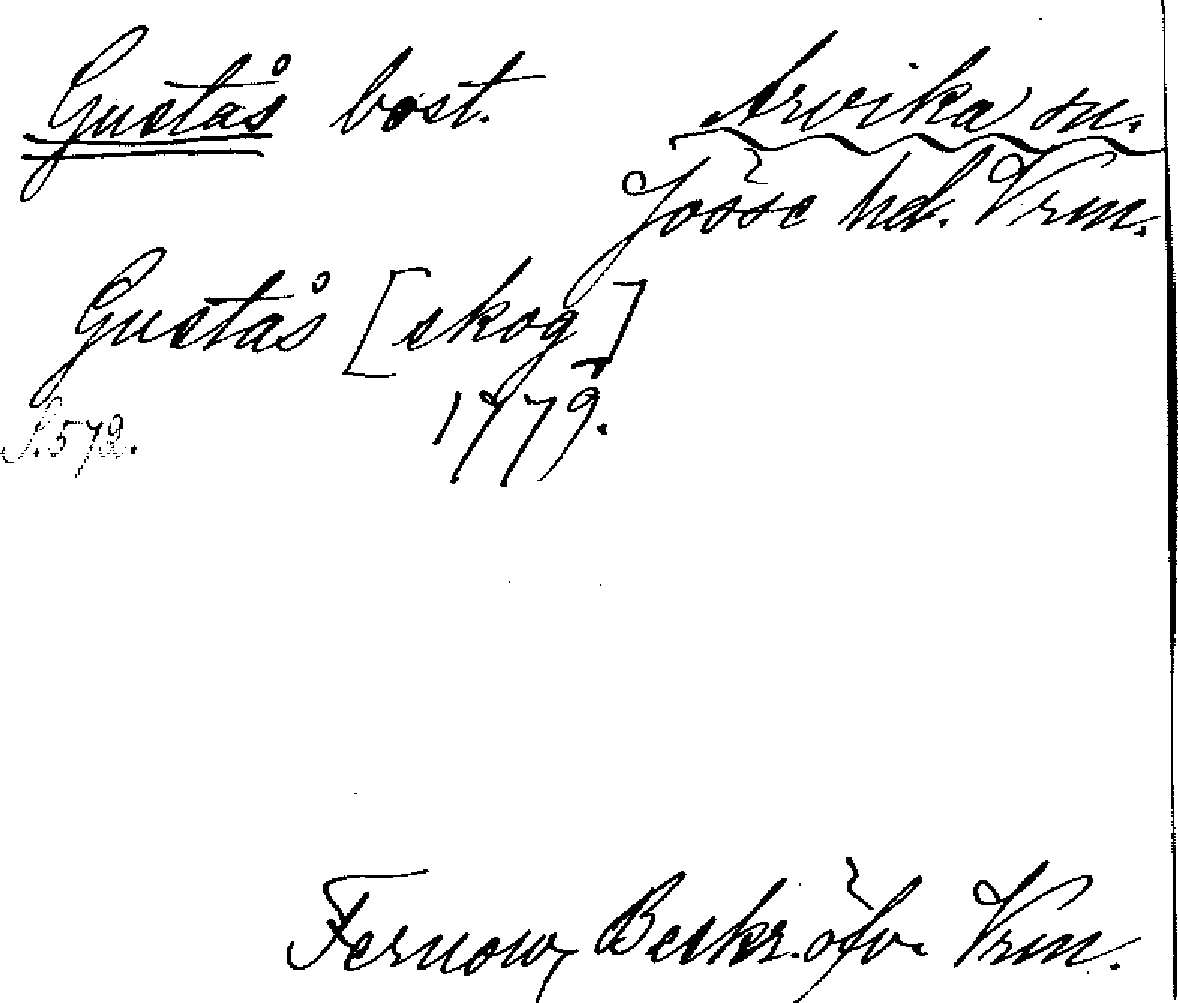 Gustås bost. Arvika sn.
Jösse hd. Vrm.
Gustås [skog]
S. 572. 1779.
Fernow, Beskr. öfv. Vrm.